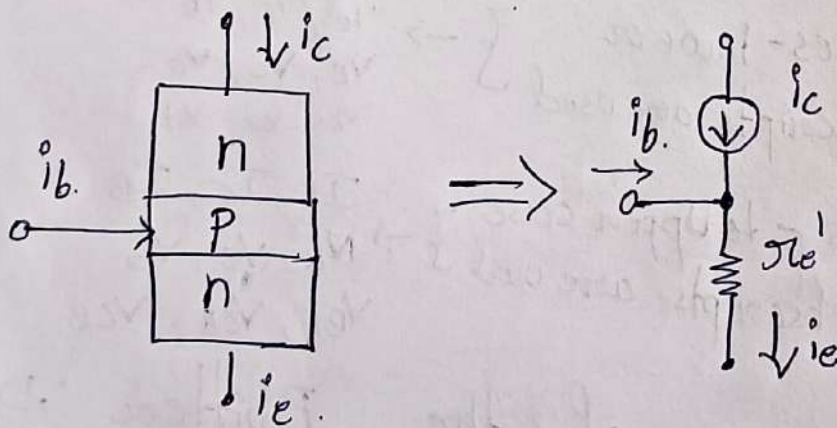 ic
n
ib.
P
n
ie.
ic
ib.
re'
ie